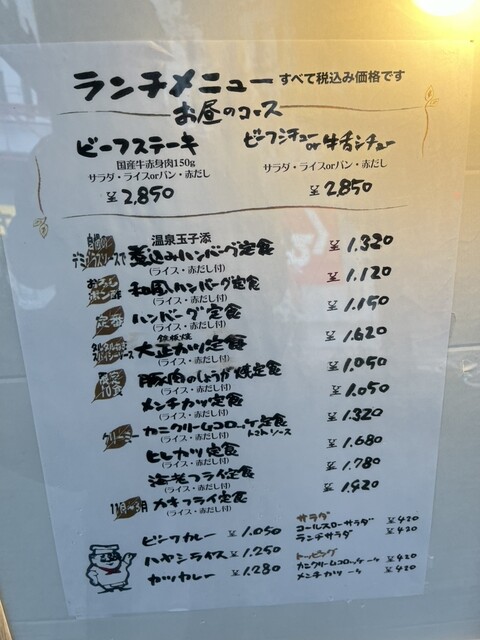 ランチメニュー すべて税込み価格です
お昼のコース
ビーフステーキ
国産牛赤身肉150g
サラダ・ライスorパン・赤だし
¥2,850
ビーフシチューor牛舌シチュー
サラダ・ライスorパン・赤だし
¥2,850
温泉玉子添
デミグラスソースで 煮込みハンバーグ定食 ¥1.320
(ライス・赤だし付)
おろしポン酢 和風ハンバーグ定食 ¥1.120
(ライス・赤だし付)
定番 ハンバーグ定食 ¥1.150
(ライス・赤だし付)
鉄板焼
スパイシーソース 大正カツ定食 ¥1.620
(ライス・赤だし付)
限定10食 豚肉のしょうが焼定食 ¥1.050
(ライス・赤だし付)
メンチカツ定食 ¥1.050
(ライス・赤だし付)
クリーミー カニクリームコロッケ定食 トマトソース ¥1.320
(ライス・赤だし付)
ヒレカツ定食 ¥1.680
(ライス・赤だし付)
海老フライ定食 ¥1.780
(ライス・赤だし付)
11月〜3月 カキフライ定食 ¥1.420
(ライス・赤だし付)
ビーフカレー ¥1.050
ハヤシライス ¥1.250
カツカレー ¥1.280
サラダ
コールスローサラダ ¥420
ランチサラダ ¥420
トッピング
カニクリームコロッケ一ヶ ¥420
メンチカツ一ヶ ¥420